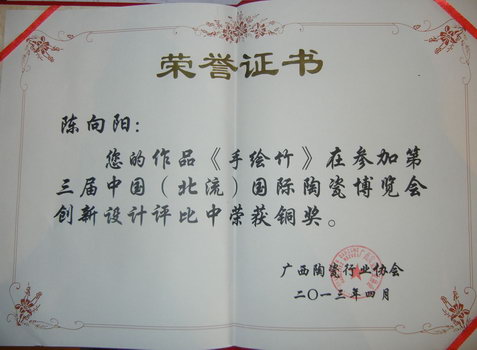 荣誉证书
陈向阳：
您的作品《手绘竹》在参加第
三届中国（北流）国际陶瓷博览会
创新设计评比中荣获铜奖。
广西陶瓷行业协会
二〇一三年四月